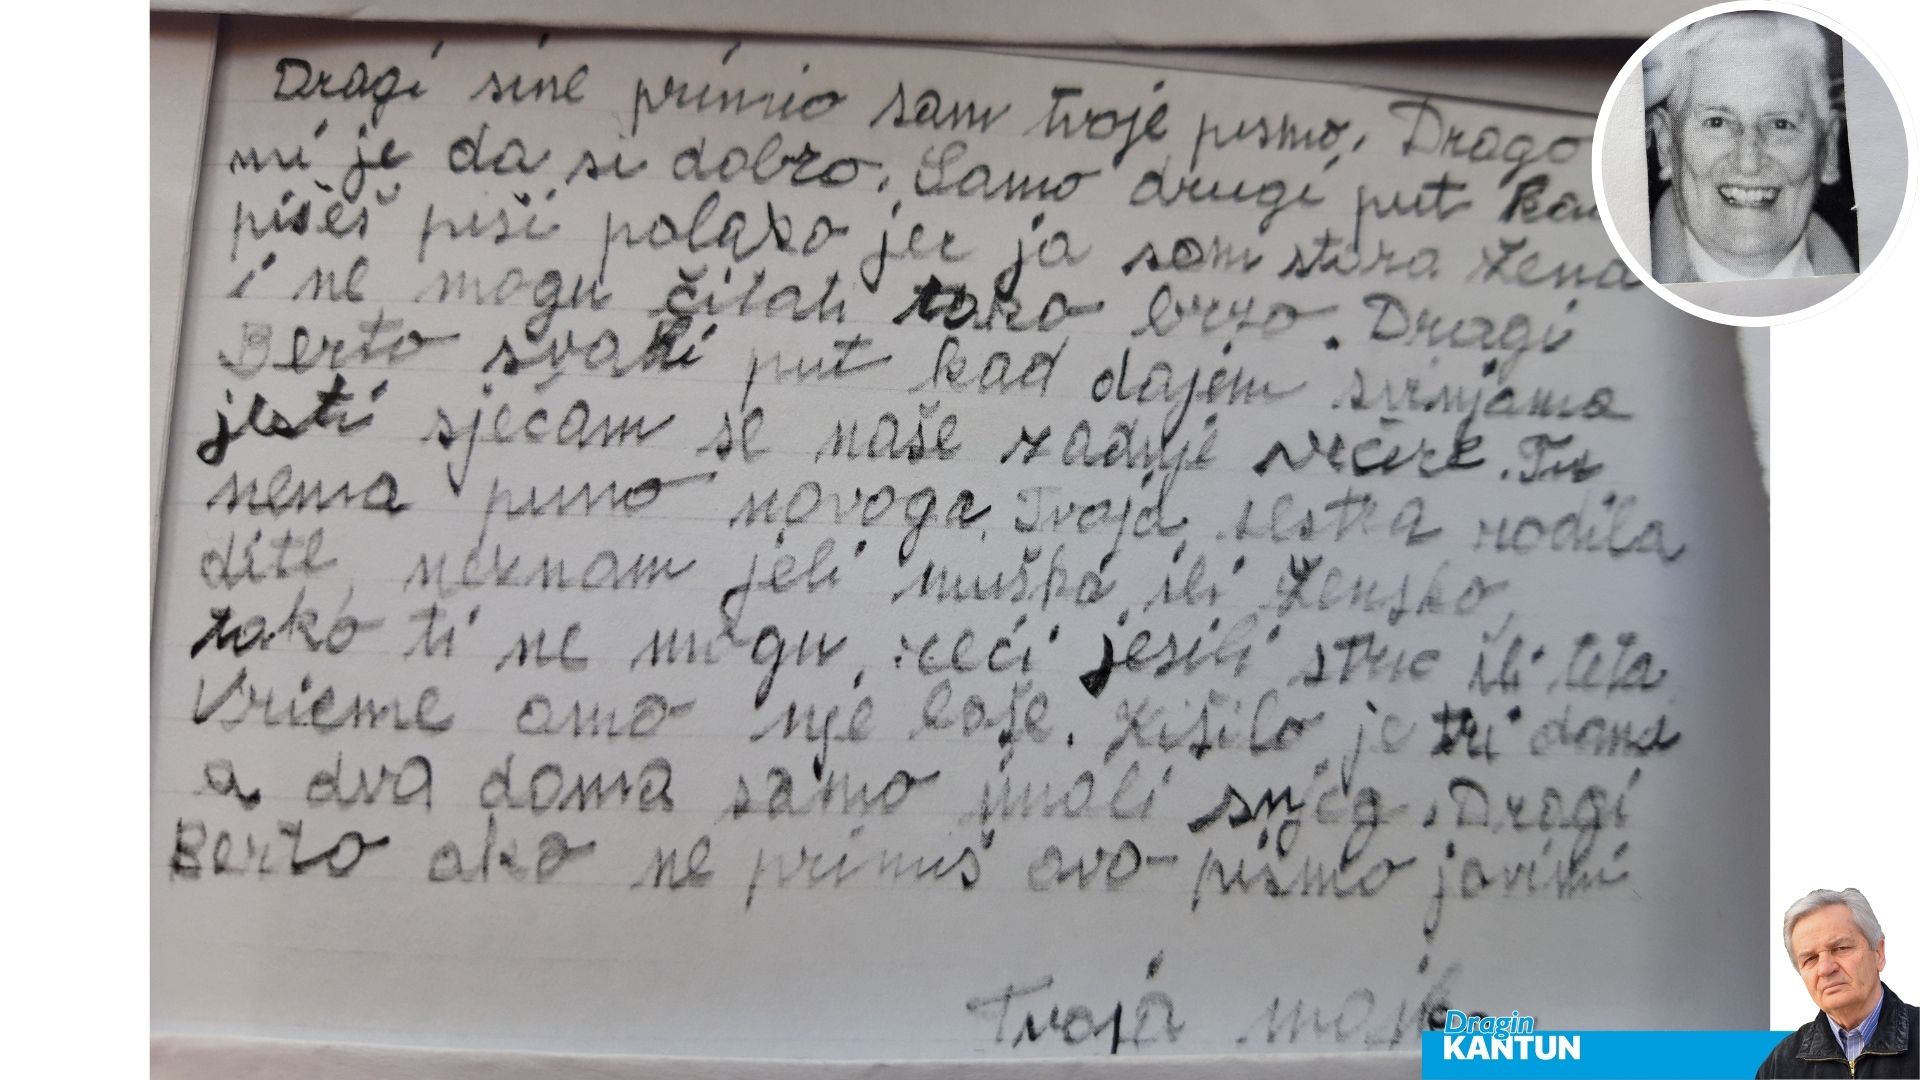 Dragi sine primio sam tvoje pismo. Drago
mi je da si dobro. Samo drugi put
pišeš piši polako jer ja sam stara žena
i ne mogu čitati tako brzo. Dragi
Berto svaki put kad dajem svinjama
jesti sjećam se naše zadnje večere. Tu
nema puno novoga. Tvoja sestra rodila
dite, neznam jeli muško ili žensko,
tako ti ne mogu reći jesili stric ili teta
Vrieme amo nje loše. Kišilo je tri dana
a dva dana samo
Berto ako ne primiš ovo pismo javimi
Tvoja
Dragin
KANTUN